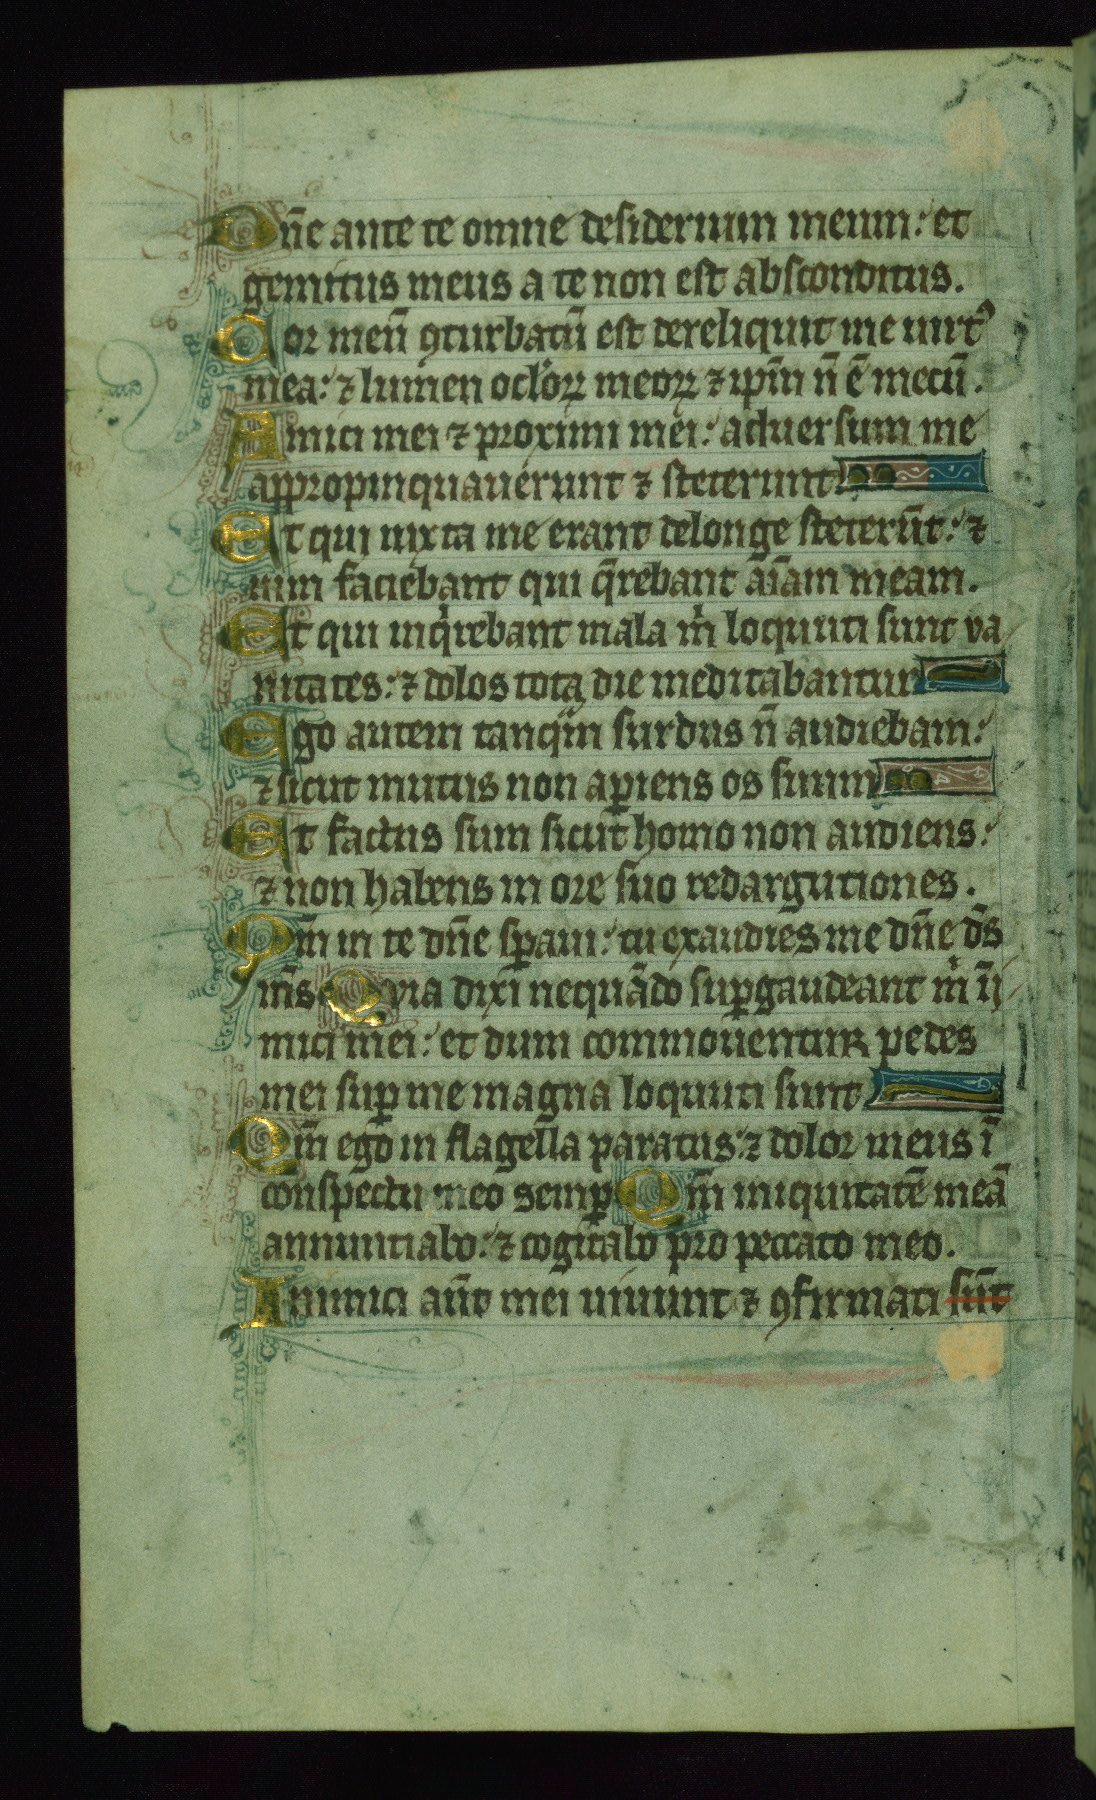 Dn̄e ante te omne desiderium meum: et
gemitus meus a te non est absconditus.
Cor meū ꝯturbatū est dereliquit me uirtꝰ
mea: ⁊ lumen oclʼoꝝ meoꝝ ⁊ ip̄m n̄ ē mecū.
Amici mei ⁊ proximi mei: aduersum me
appropinquauerunt ⁊ steterunt
Et qui iuxta me erant delonge steterūt: ⁊
uim faciebant qui q̄rebant aīam meam.
Et qui inqͥrebant mala mͥ loquuti sunt va
nitates: ⁊ dolos tota die meditabantur
Ego autem tanqͣm surdus n̄ audiebam:
⁊ sicut mutus non aꝑiens os suum
Et factus sum sicut homo non audiens:
⁊ non habens in ore suo redargutiones.
Qm̄ in te dn̄e sꝑaui: tu exaudies me dn̄e ds̄
m̄s Qvia dixi nequādo suꝑgaudeant mͥ īī
mici mei: et dum commouentur pedes
mei suꝑ me magna loquuti sunt
Qm̄ ego in flagella paratus: ⁊ dolor meus ī
conspectu meo semꝑ Qm̄ iniquitatē meā
annuntiabo: ⁊ cogitabo pro peccato meo.
Inimici aūt mei uiuunt ⁊ ꝯfirmati sūt